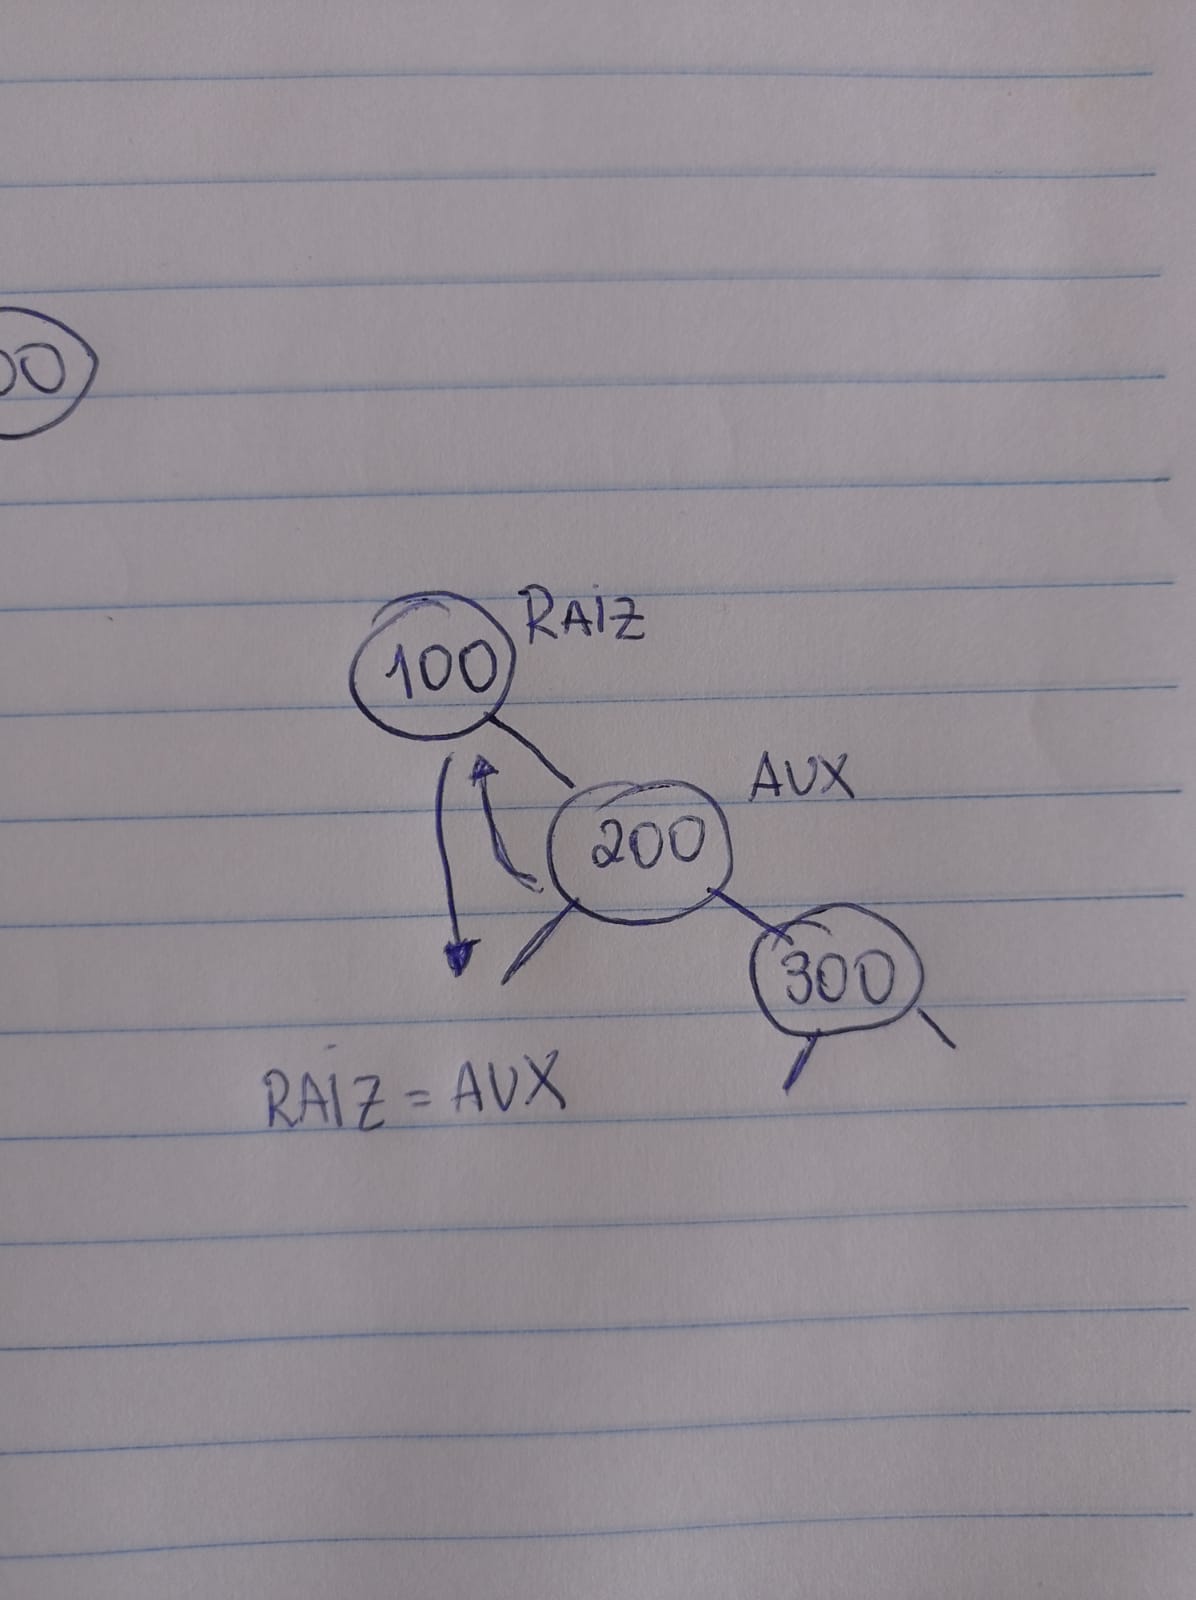 100 RAIZ
200 AUX
300
RAIZ = AUX